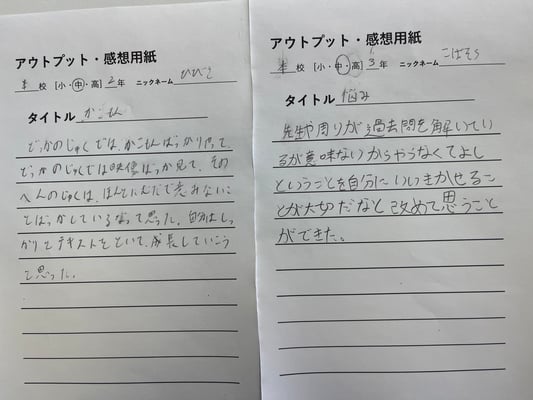 アウトプット・感想用紙
本 校 [小・中・高] 2 年 ニックネーム ひびき
タイトル かこもん
どっかのじゅくでは、かこもんばっかりやって、
どっかのじゅくでは映像ばっか見て、その
へんのじゅくは、ほんとにむだで意味ないこ
とばっかしているなって思った。自分はしっ
かりとテキストをといて、成長していこう
と思った。
アウトプット・感想用紙
本 校 [小・中・高] 3 年 ニックネーム こばそら
タイトル 悩み
先生や周りが過去問を解いてい
るが意味ないからやらなくてよし
ということを自分にいいきかせるこ
とが大切だなと改めて思うこと
ができた。